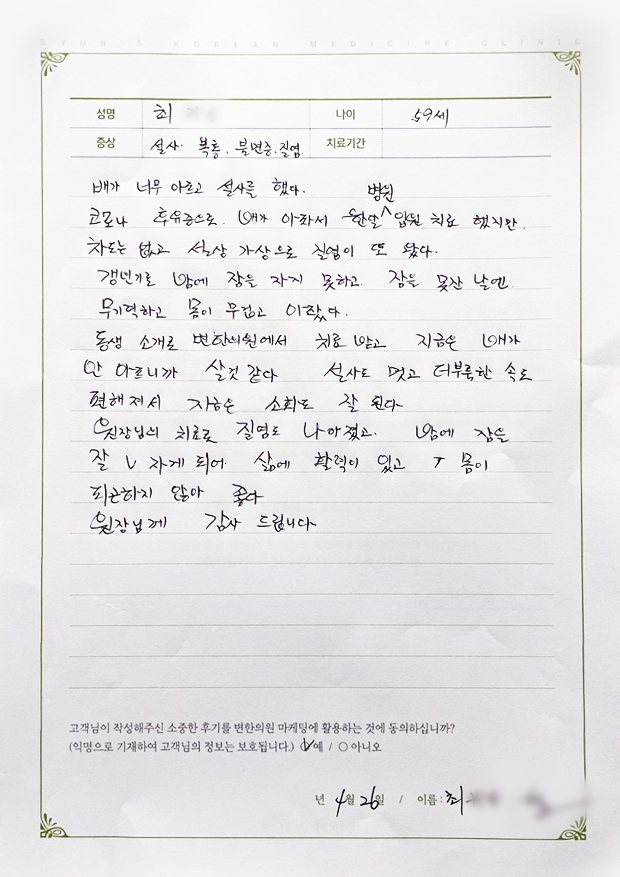 BYUN'S KOREAN MEDICINE CLINIC
성명 최 나이 59세
증상 설사. 복통, 불면증, 질염 치료기간
배가 너무 아프고 설사를 했다.
코로나 후유증으로, 배가 아파서 한달 병원 입원 치료 했지만,
차도는 없고 설상 가상으로 질염이 또 왔다.
갱년기로 밤에 잠을 자지 못하고, 잠을 못잔 날엔
무기력하고 몸이 무겁고 아팠다.
동생 소개로 변한의원에서 치료 받고 지금은 배가
안 아프니까 살것 같다 설사도 멎고 더부룩한 속도
편해져서 지금은 소화도 잘 된다
원장님의 치료로 질염도 나아졌고, 밤에 잠을
잘 자게 되어 삶에 활력이 있고 몸이
피곤하지 않아 좋다
원장님께 감사 드립니다
고객님이 작성해주신 소중한 후기를 변한의원 마케팅에 활용하는 것에 동의하십니까?
(익명으로 기재하여 고객님의 정보는 보호됩니다.) 예 / 아니오
년 4월 26일 / 이름 : 최